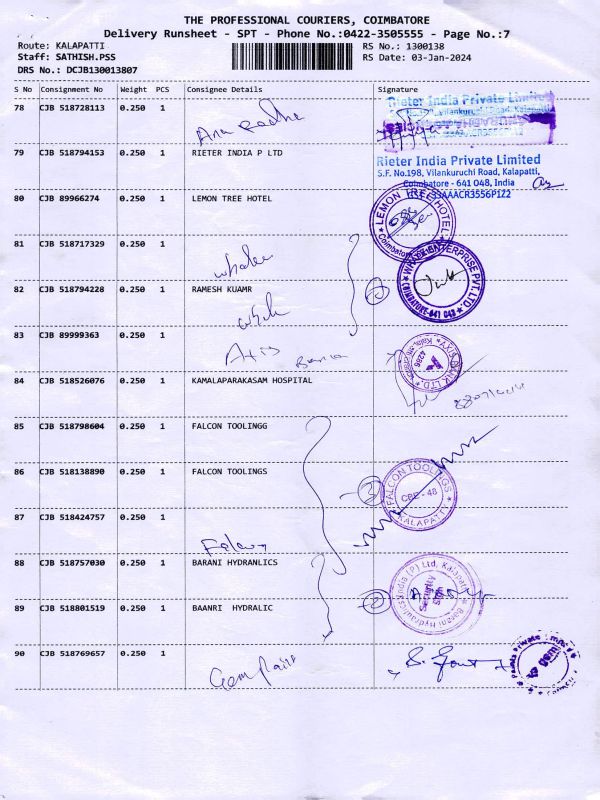 THE PROFESSIONAL COURIERS, COIMBATORE
Delivery Runsheet - SPT - Phone No.:0422-3505555 - Page No.:7
Route: KALAPATTI RS No.: 1300138
Staff: SATHISH.PSS RS Date: 03-Jan-2024
DRS No.: DCJB130013807
S No Consignment No Weight PCS Consignee Details Signature
78 CJB 518728113 0.250 1
Rieter India Private Limited
79 CJB 518794153 0.250 1 RIETER INDIA P LTD
Rieter India Private Limited
S.F. No.198, Vilankuruchi Road, Kalapatti,
Coimbatore - 641 048, India
33AAACR3556P1Z2
80 CJB 89966274 0.250 1 LEMON TREE HOTEL
LEMON TREE HOTEL
Coimbatore
81 CJB 518717329 0.250 1
ENTERPRISE PVT.LTD
COIMBATORE-641 048
82 CJB 518794228 0.250 1 RAMESH KUAMR
83 CJB 89999363 0.250 1
Axis
84 CJB 518526076 0.250 1 KAMALAPARAKASAM HOSPITAL
85 CJB 518798604 0.250 1 FALCON TOOLINGG
86 CJB 518138890 0.250 1 FALCON TOOLINGS
3
FALCON TOOLINGS
CBE - 48
KALAPATTY
87 CJB 518424757 0.250 1
Falcon
88 CJB 518757030 0.250 1 BARANI HYDRANLICS
89 CJB 518801519 0.250 1 BAANRI HYDRALIC
2
Barani Hydraulics India (P) Ltd, Kalapatti
Security
Sign
90 CJB 518769657 0.250 1